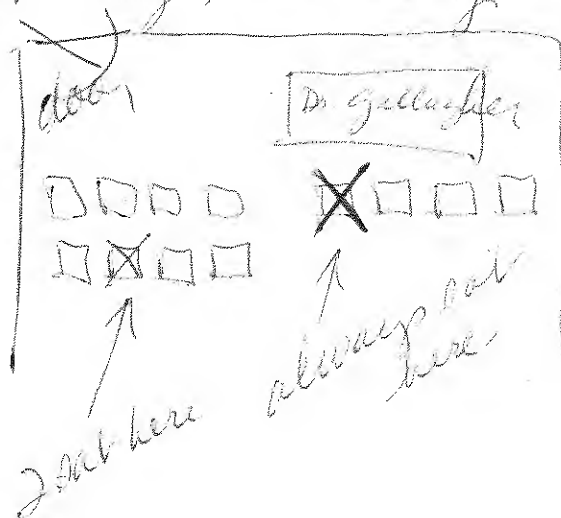 door
Dr Gallagher
I sat here
always sat
here.